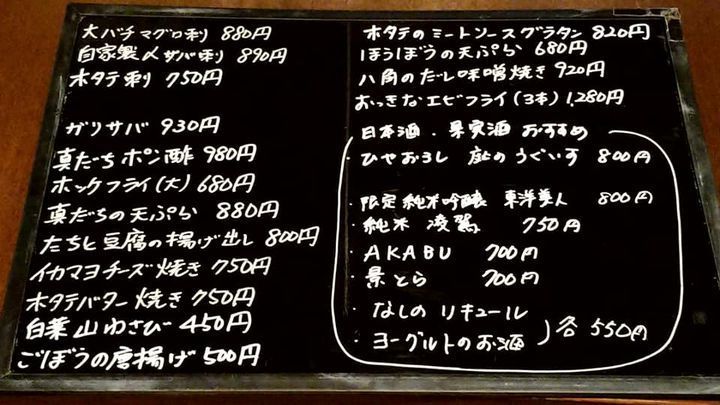 大バチマグロ刺 880円
自家製〆サバ刺 890円
ホタテ刺 750円
ガリサバ 930円
真だちポン酢 980円
ホッケフライ(大) 680円
真だちの天ぷら 880円
たちと豆腐の揚げ出し 800円
イカマヨチーズ焼き 750円
ホタテバター焼き 750円
白菜山わさび 450円
ごぼうの唐揚げ 500円
ホタテのミートソースグラタン 820円
ほうぼうの天ぷら 680円
八角のだし味噌焼き 920円
おっきなエビフライ(3本) 1,280円
日本酒・果実酒 おすすめ
・ひやおろし 庭のうぐいす 800円
・限定純米吟醸 東洋美人 800円
・純米 凌駕 750円
・AKABU 700円
・景とら 700円
・なしのリキュール
・ヨーグルトのお酒 )各 550円